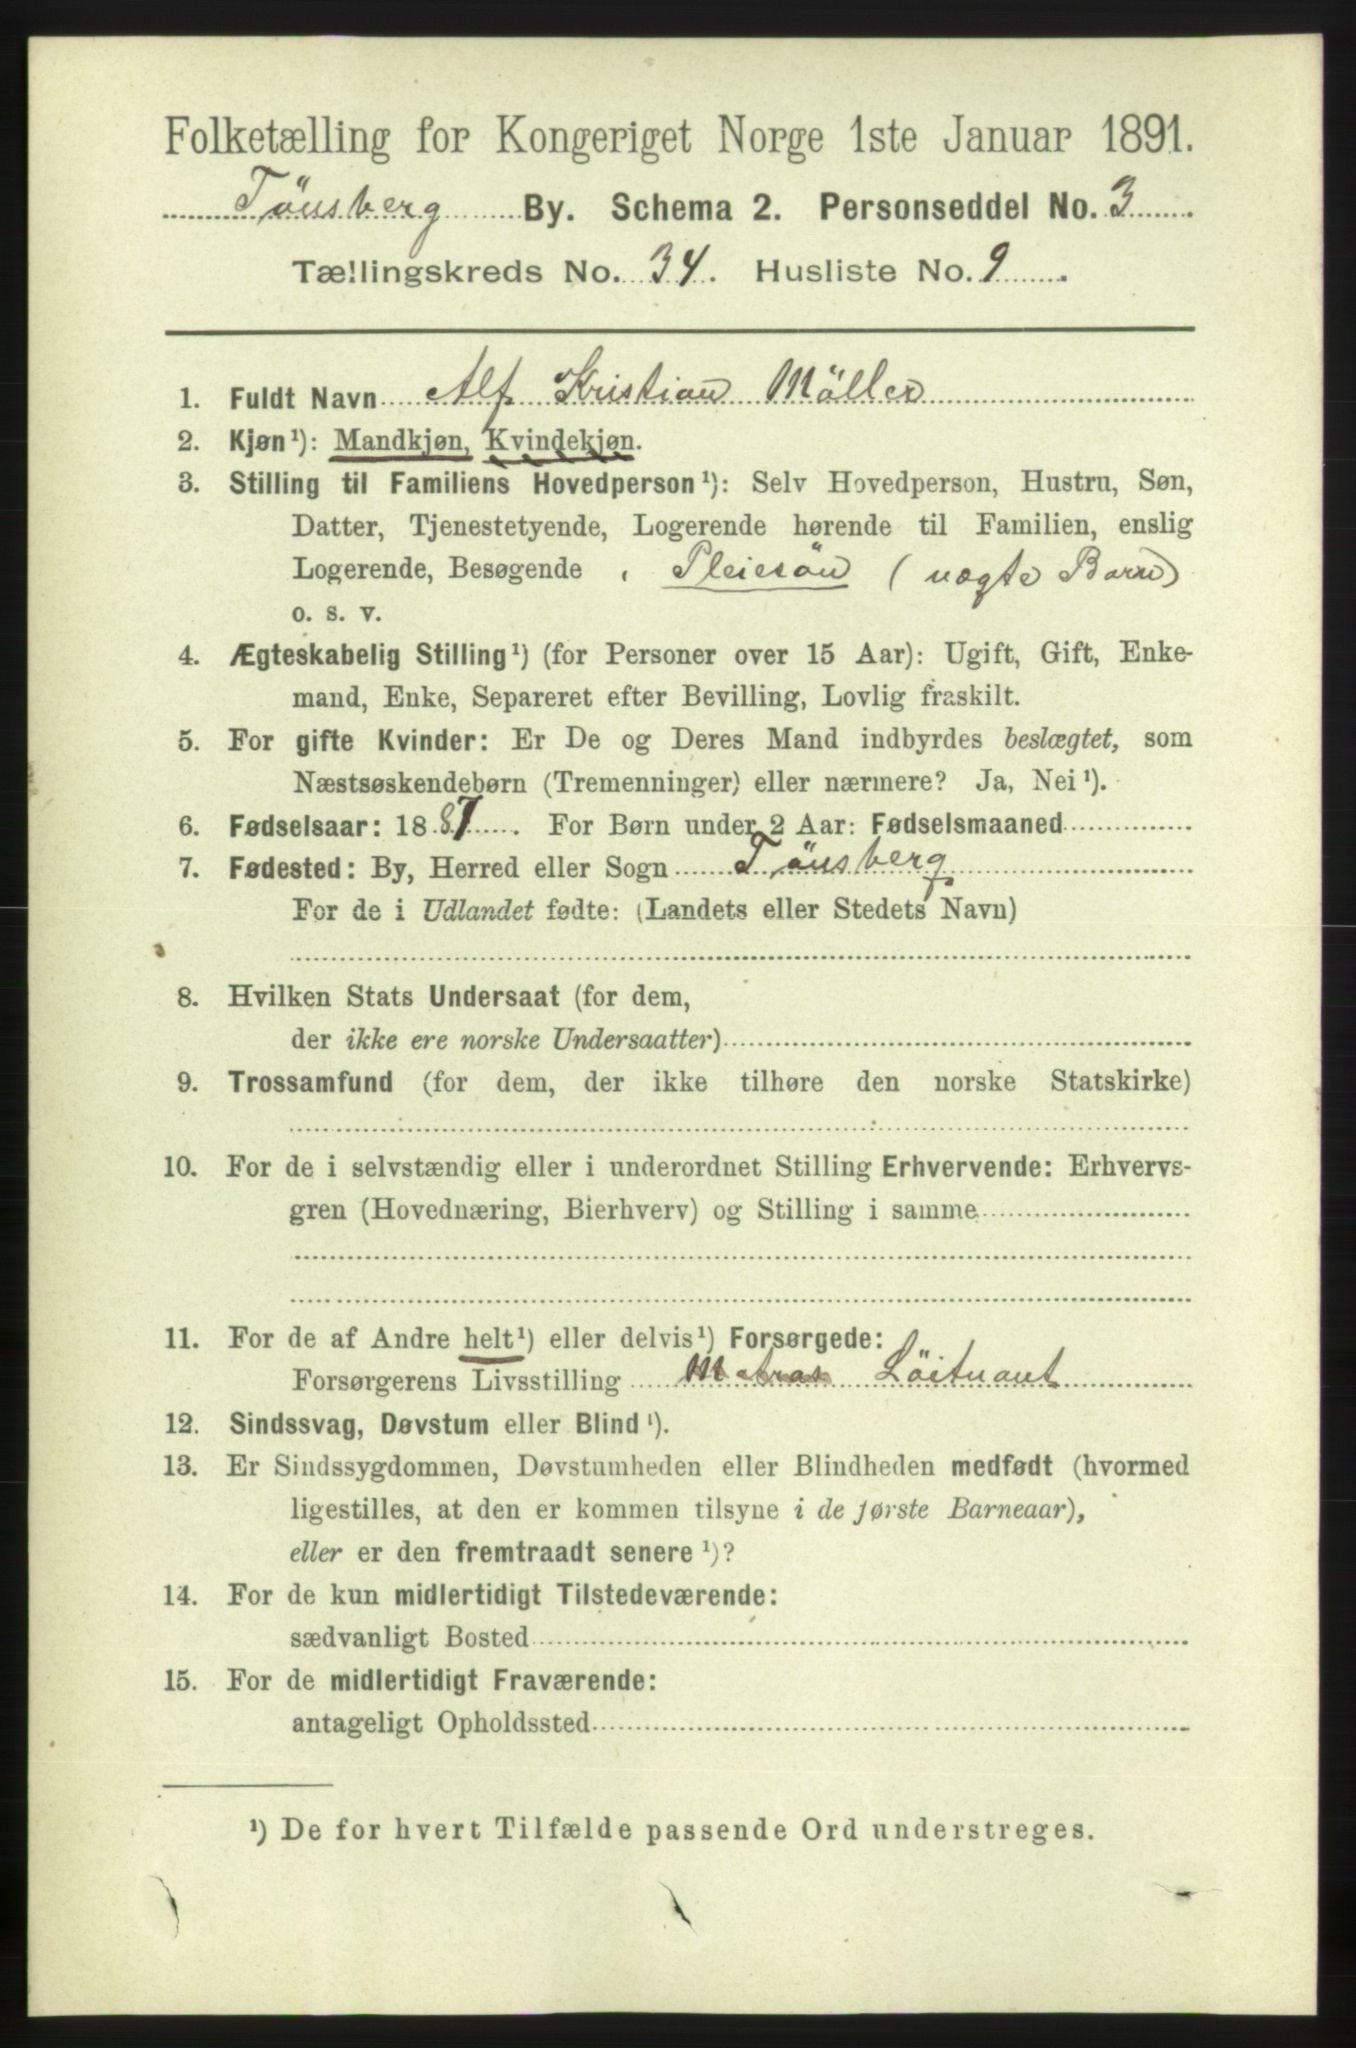 Folketælling for Kongeriget Norge 1ste Januar 1891.
Tönsberg By. Schema 2. Personseddel No. 3
Tællingskreds No. 34. Husliste No. 9.
1. Fuldt Navn Alf Kristian Möller
2. Kjøn¹): Mandkjøn, Kvindekjøn.
3. Stilling til Familiens Hovedperson¹): Selv Hovedperson, Hustru, Søn,
Datter, Tjenestetyende, Logerende hørende til Familien, enslig
Logerende, Besøgende, Pleiesön (uægte Barn)
o. s. v.
4. Ægteskabelig Stilling¹) (for Personer over 15 Aar): Ugift, Gift, Enke-
mand, Enke, Separeret efter Bevilling, Lovlig fraskilt.
5. For gifte Kvinder: Er De og Deres Mand indbyrdes beslægtet, som
Næstsøskendebørn (Tremenninger) eller nærmere? Ja, Nei¹).
6. Fødselsaar: 1887. For Børn under 2 Aar: Fødselsmaaned
7. Fødested: By, Herred eller Sogn Tönsberg
For de i Udlandet fødte: (Landets eller Stedets Navn)
8. Hvilken Stats Undersaat (for dem,
der ikke ere norske Undersaatter)
9. Trossamfund (for dem, der ikke tilhøre den norske Statskirke)
10. For de i selvstændig eller i underordnet Stilling Erhvervende: Erhvervs-
gren (Hovednæring, Bierhverv) og Stilling i samme
11. For de af Andre helt¹) eller delvis¹) Forsørgede:
Forsørgerens Livsstilling Löitnant
12. Sindssvag, Døvstum eller Blind¹).
13. Er Sindssygdommen, Døvstumheden eller Blindheden medfødt (hvormed
ligestilles, at den er kommen tilsyne i de første Barneaar),
eller er den fremtraadt senere¹)?
14. For de kun midlertidigt Tilstedeværende:
sædvanligt Bosted
15. For de midlertidigt Fraværende:
antageligt Opholdssted
¹) De for hvert Tilfælde passende Ord understreges.